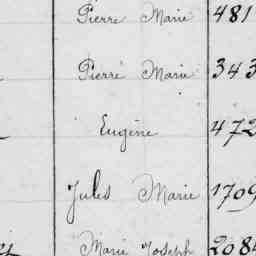 Pierre Marie 481
Pierre Marie 343
Eugène 472
Jules Marie 1709
Marie Joseph 2084